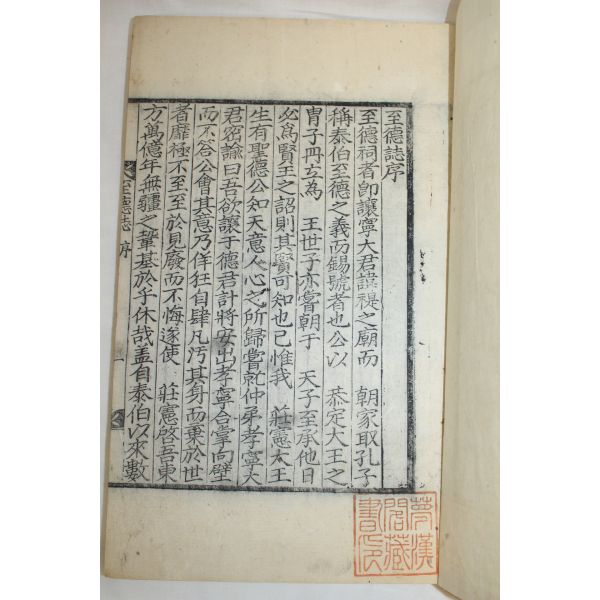 至德誌序
至德祠者卽讓寧大君諱禔之廟而 朝家取孔子
稱泰伯至德之義而錫號者也公以 恭定大王之
冑子冊立為 王世子亦嘗朝于 天子至承他日
必為賢王之詔則其賢可知也已惟我 莊憲大王
生有聖德公知天意人心之所歸嘗就仲弟孝寧大
君密諭曰吾欲讓于德君計將安出孝寧合掌向壁
而不答公會其意乃佯狂自肆凡汚其身而棄於世
者靡極不至至於見廢而不悔遂使 莊憲啓吾東
方萬億年無疆之鞏基於乎休哉盖自泰伯以來數
至德誌 序 一
夢漢
閣藏
書印